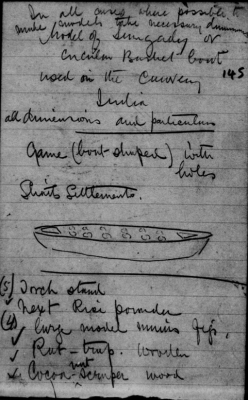 In all cases where possible to
make models take necessary dimens
Model of Senegady or
Circular Basket boat
145
used on the Cauvery
India
all dimensions and particulars
Game (boat-shaped) with
holes
Straits Settlements.
(5) Torch stand
✓ Next Rice pounder
(4)
✓ large model minus figs.
✓ Rat-trap. wooden
Cocoanut Scraper wood